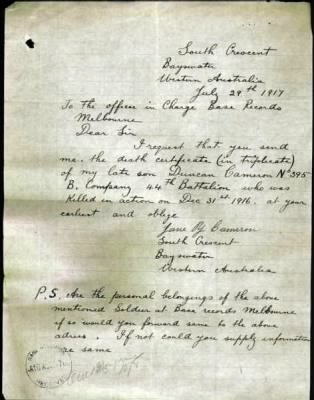 South Crescent
Bayswater
Western Australia
July 29th 1917
To the officer in Charge Base Records
Melbourne
Dear Sir
I request that you send
me. the death certificate (in triplicate)
of my late son Duncan Cameron No 395
B. Company 44th Battalion who was
Killed in action on Dec 31st 1916. at your
earliest and oblige
Jane Cameron
South Crescent
Bayswater
Western Australia
P.S. Are the personal belongings of the above
mentioned Soldier at Base records Melbourne
if so would you forward same to the above
adress. If not could you supply information
re same